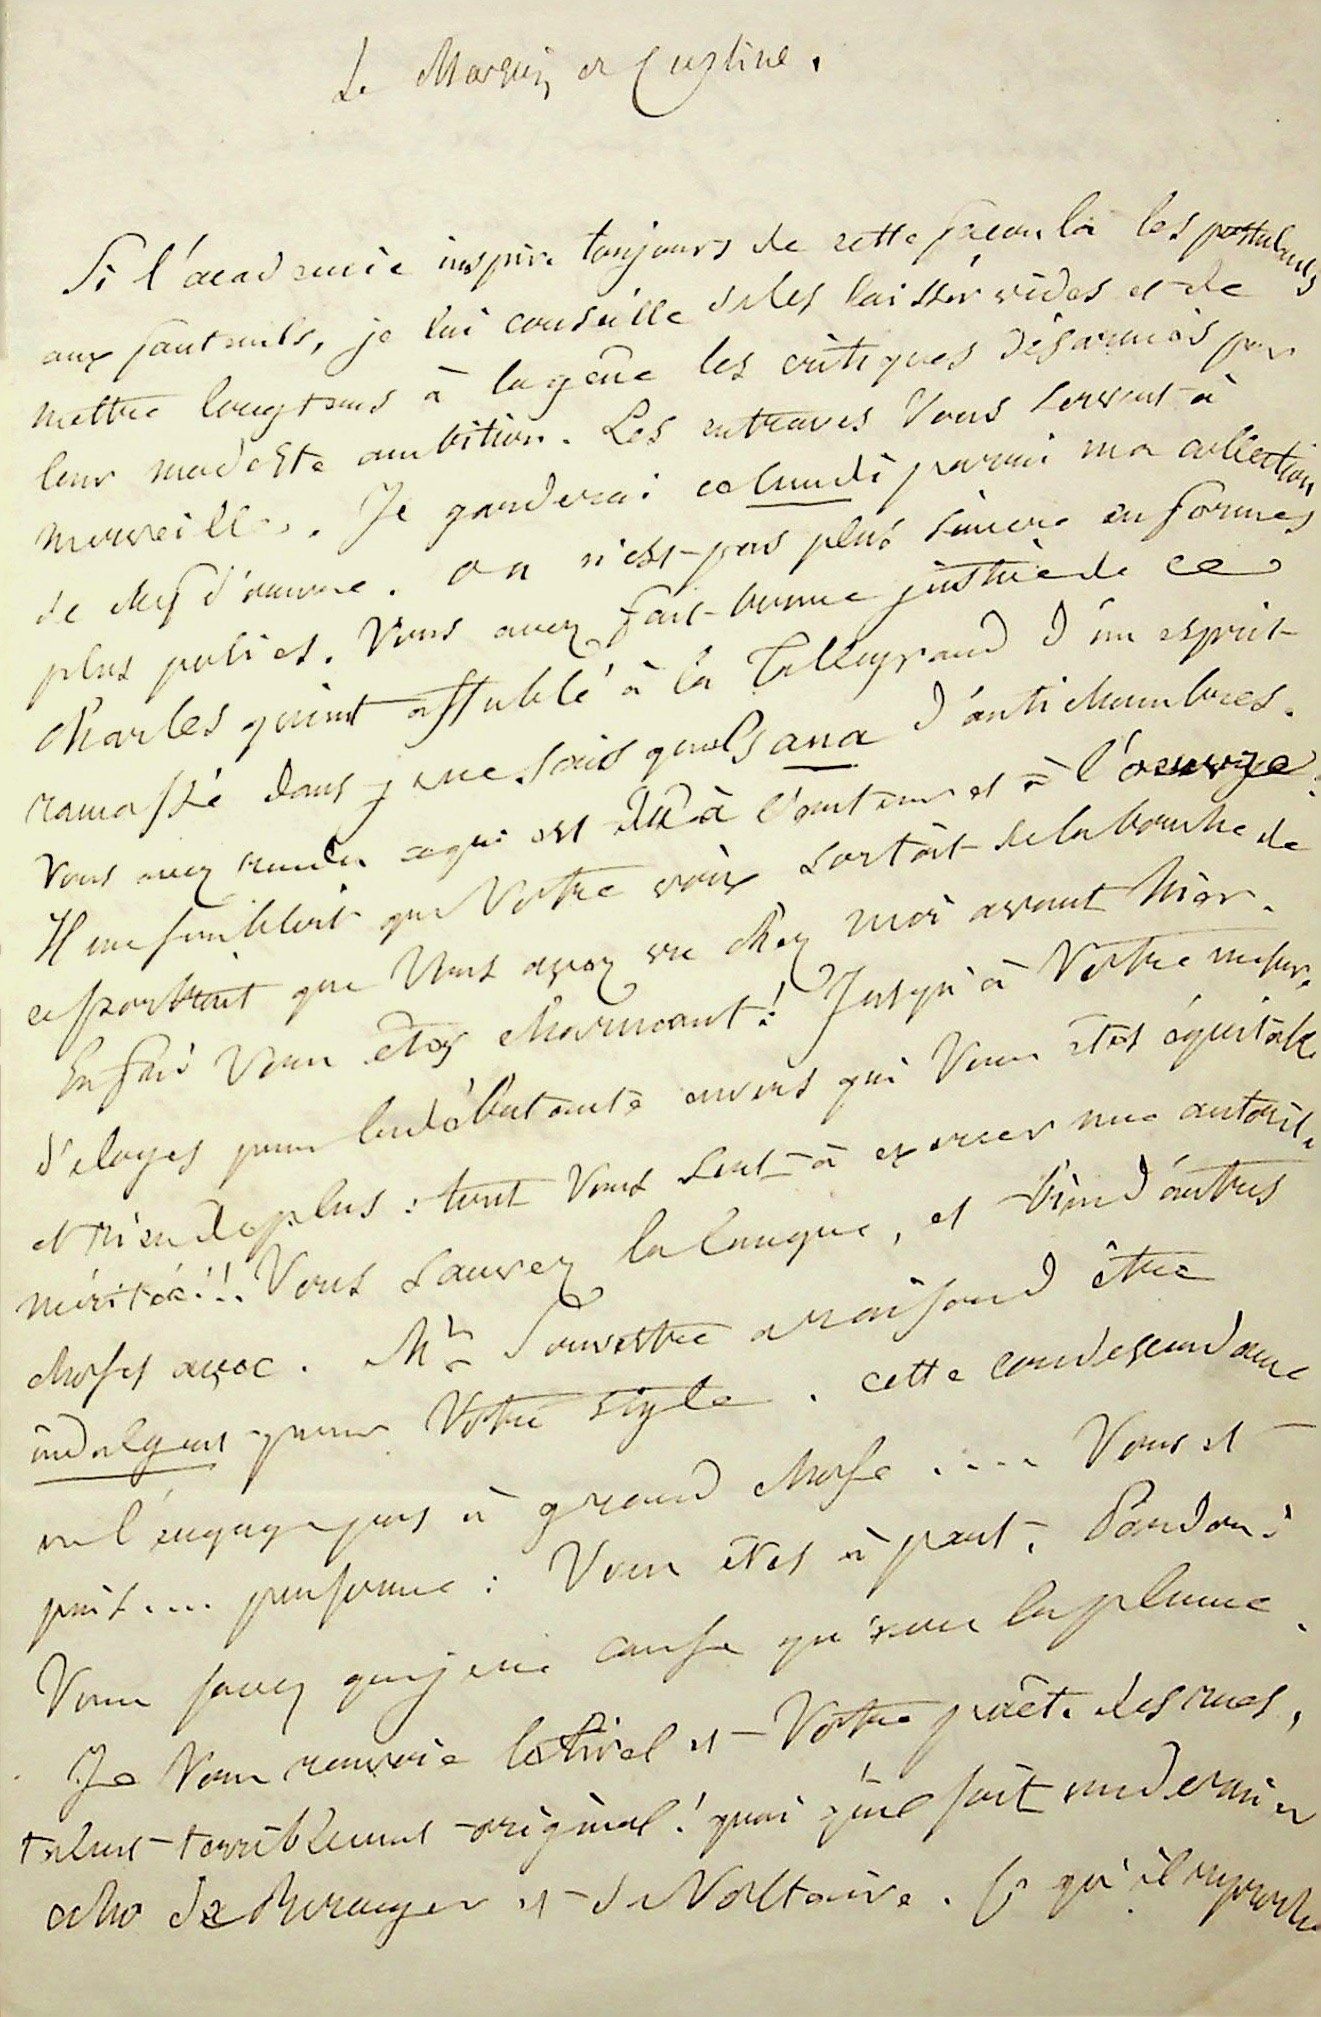 Le Marquis de Custine.
Si l'académie inspire toujours de cette facon là les postulants
aux fauteuils, je lui conseille de les laisser vides et de
mettre longtems à la gêne les critiques désarmés par
leur modeste ambition. Les entraves Vous servent à
merveille. Je garderai ce lundi parmi ma collection
de chefs d'œuvre. on n'est pas plus sincère en formes
plus polies. Vous avez fait bonne justice de ce
Charles quint affublé à la Talleyrand d'un esprit
ramassé dans je ne sais quels ana d'antichambres.
Vous avez rendu ce qui est dû à l'auteur et à l'ouvrage.
Il me semblait que Votre voix sortait de la bouche de
ce portrait que Vous avez vu chez moi avant hier.
Enfin Vous êtes charmant! Jusqu'à Votre mesure
d'éloges pour la débutante envers qui Vous êtes équitable
et rien de plus: tout Vous sert à exercer une autorité
méritée!!. Vous sauvez la langue, et bien d'autres
choses avec. Mr Souvestre a raison d'être
indulgent pour Votre style. cette condescendance
ne l'engage pas à grand chose .... Vous et
puis.... personne: Vous êtes à part. Pardon!
Vous savez que je ne cause qu'avec la plume.
Je Vous renvoie et Votre poëte des rues,
talent terriblement original! quoi qu'il soit un dernier
écho de Beranger et de Voltaire. Ce qu'il reproche